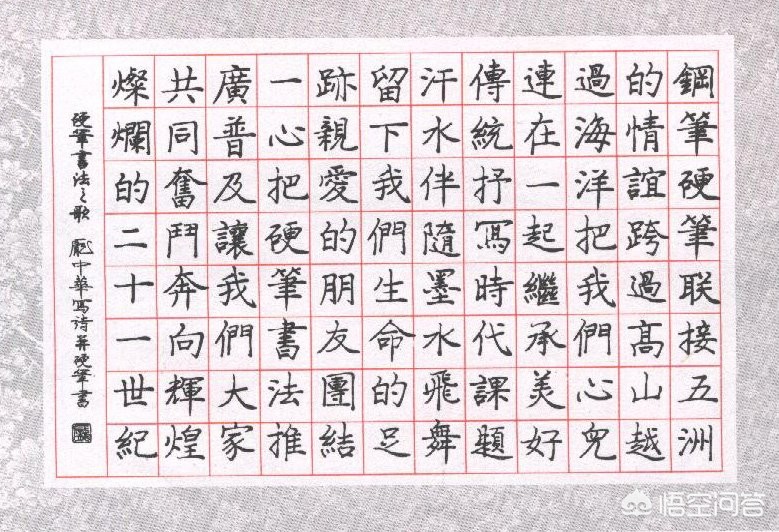 鋼筆硬筆联接五洲
的情誼跨過髙山越
過海洋把我們心兒
連在一起繼承美好
傳統抒寫時代課題
汗水伴隨墨水飛舞
留下我們生命的足
跡親愛的朋友團結
一心把硬筆書法推
廣普及讓我們大家
共同奮鬥奔向輝煌
燦爛的二十一世紀
硬筆書法之歌 龐中華寫诗并硬筆書
悟空问答